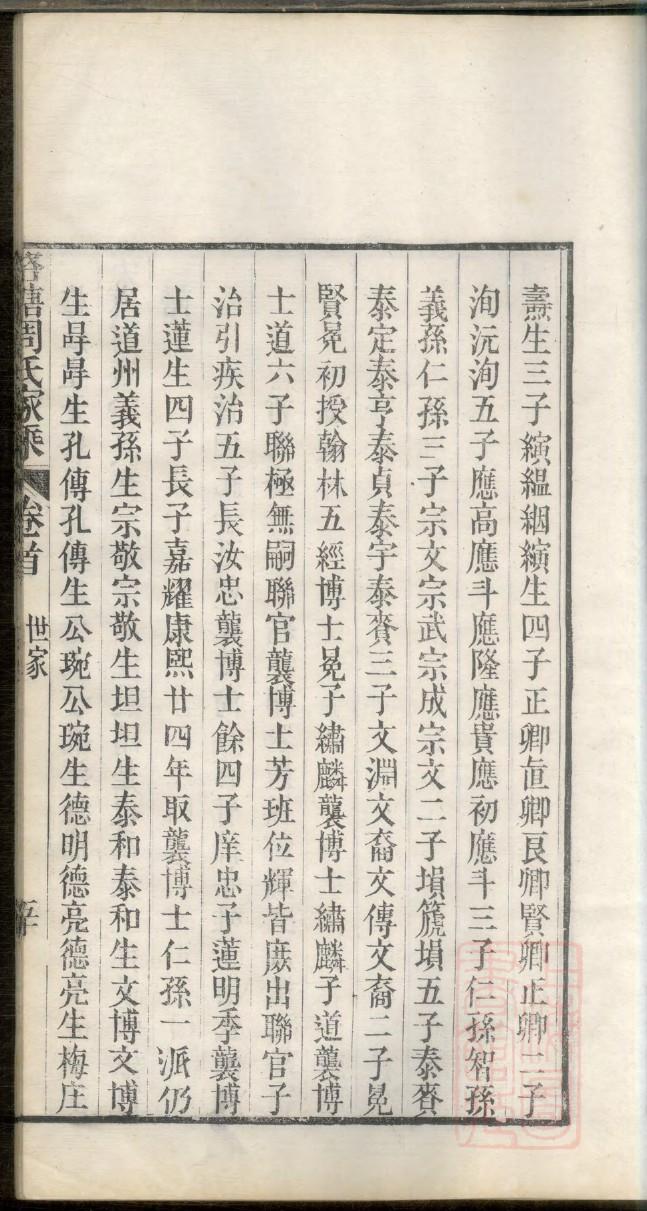 燾生三子縯緼絪縯生四子正卿直卿良卿賢卿正卿二子
洵沅洵五子應高應斗應隆應貴應初應斗三子仁孫智孫
義孫仁孫三子宗文宗武宗成宗文二子塤箎塤五子泰賚
泰定泰亨泰貞泰宇泰賚三子文淵文裔文傳文裔二子冕
賢冕初授翰林五經博士冕子繡麟襲博士繡麟子道襲博
士道六子聯極無嗣聯官襲博士芳班位輝皆庶出聯官子
治引疾治五子長汝忠襲博士餘四子庠忠子蓮明季襲博
士蓮生四子長子嘉耀康熙廿四年取襲博士仁孫一派仍
居道州義孫生宗敬宗敬生坦坦生泰和泰和生文博文博
生㝵㝵生孔傳孔傳生公琬公琬生德明德亮德亮生梅庄
周氏家乘 卷首 世家